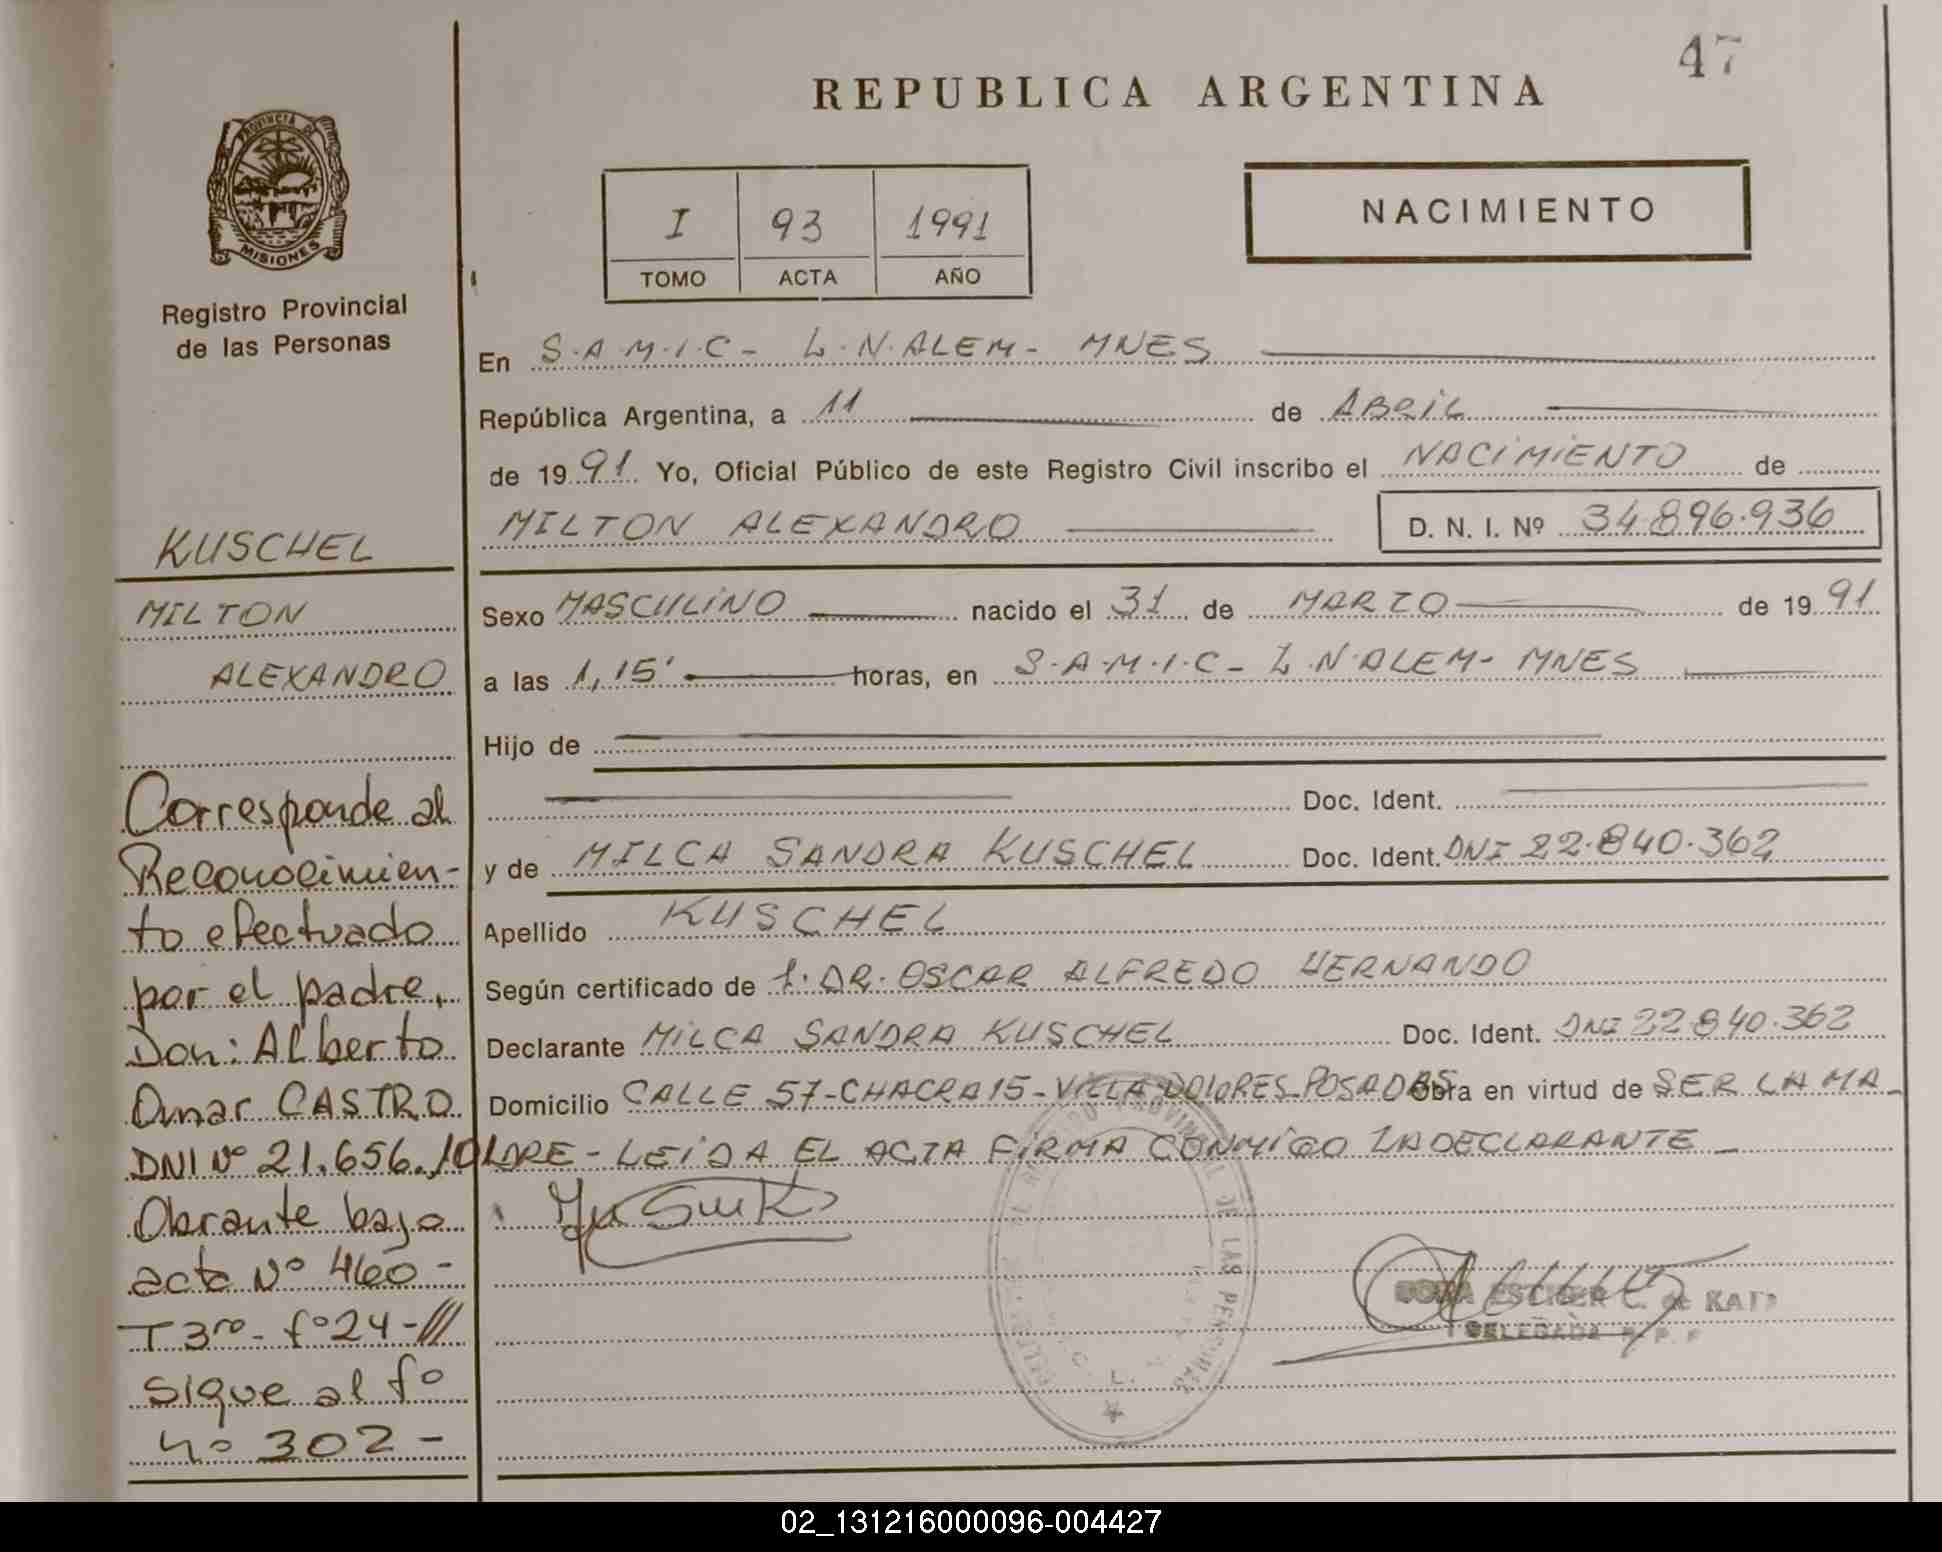 47
REPUBLICA ARGENTINA
PROVINCIA DE
MISIONES
Registro Provincial
de las Personas
I 93 1991
TOMO ACTA AÑO
NACIMIENTO
En S.A.M.I.C- L.N.ALEM- MNES
República Argentina, a 11 de ABRIL
de 1991 Yo, Oficial Público de este Registro Civil inscribo el NACIMIENTO de
MILTON ALEXANDRO D. N. I. Nº 34.896.936
KUSCHEL
MILTON
ALEXANDRO
Sexo MASCULINO nacido el 31 de MARZO de 1991
a las 1,15' horas, en S.A.M.I.C- L.N.ALEM- MNES
Hijo de
Doc. Ident.
y de MILCA SANDRA KUSCHEL Doc. Ident. DNI 22.840.362
Apellido KUSCHEL
Según certificado de 1. DR. OSCAR ALFREDO HERNANDO
Declarante MILCA SANDRA KUSCHEL Doc. Ident. DNI 22840.362
Domicilio CALLE 57-CHACRA15-VILLA DOLORES-POSADAS Obra en virtud de SER LA MA-
DRE - LEIDA EL ACTA FIRMA CONMIGO LA DECLARANTE
Corresponde al
Reconocimien-
to efectuado
por el padre,
Don: Alberto
Omar CASTRO
DNI Nº 21.656.101
Obrante bajo
acta Nº 460-
T 3ro- fº24-///
sigue al fº
nº 302-
ESTHER C. de KATZ
DELEGADA R. P. P
DE LAS PERSONAS
02_131216000096-004427